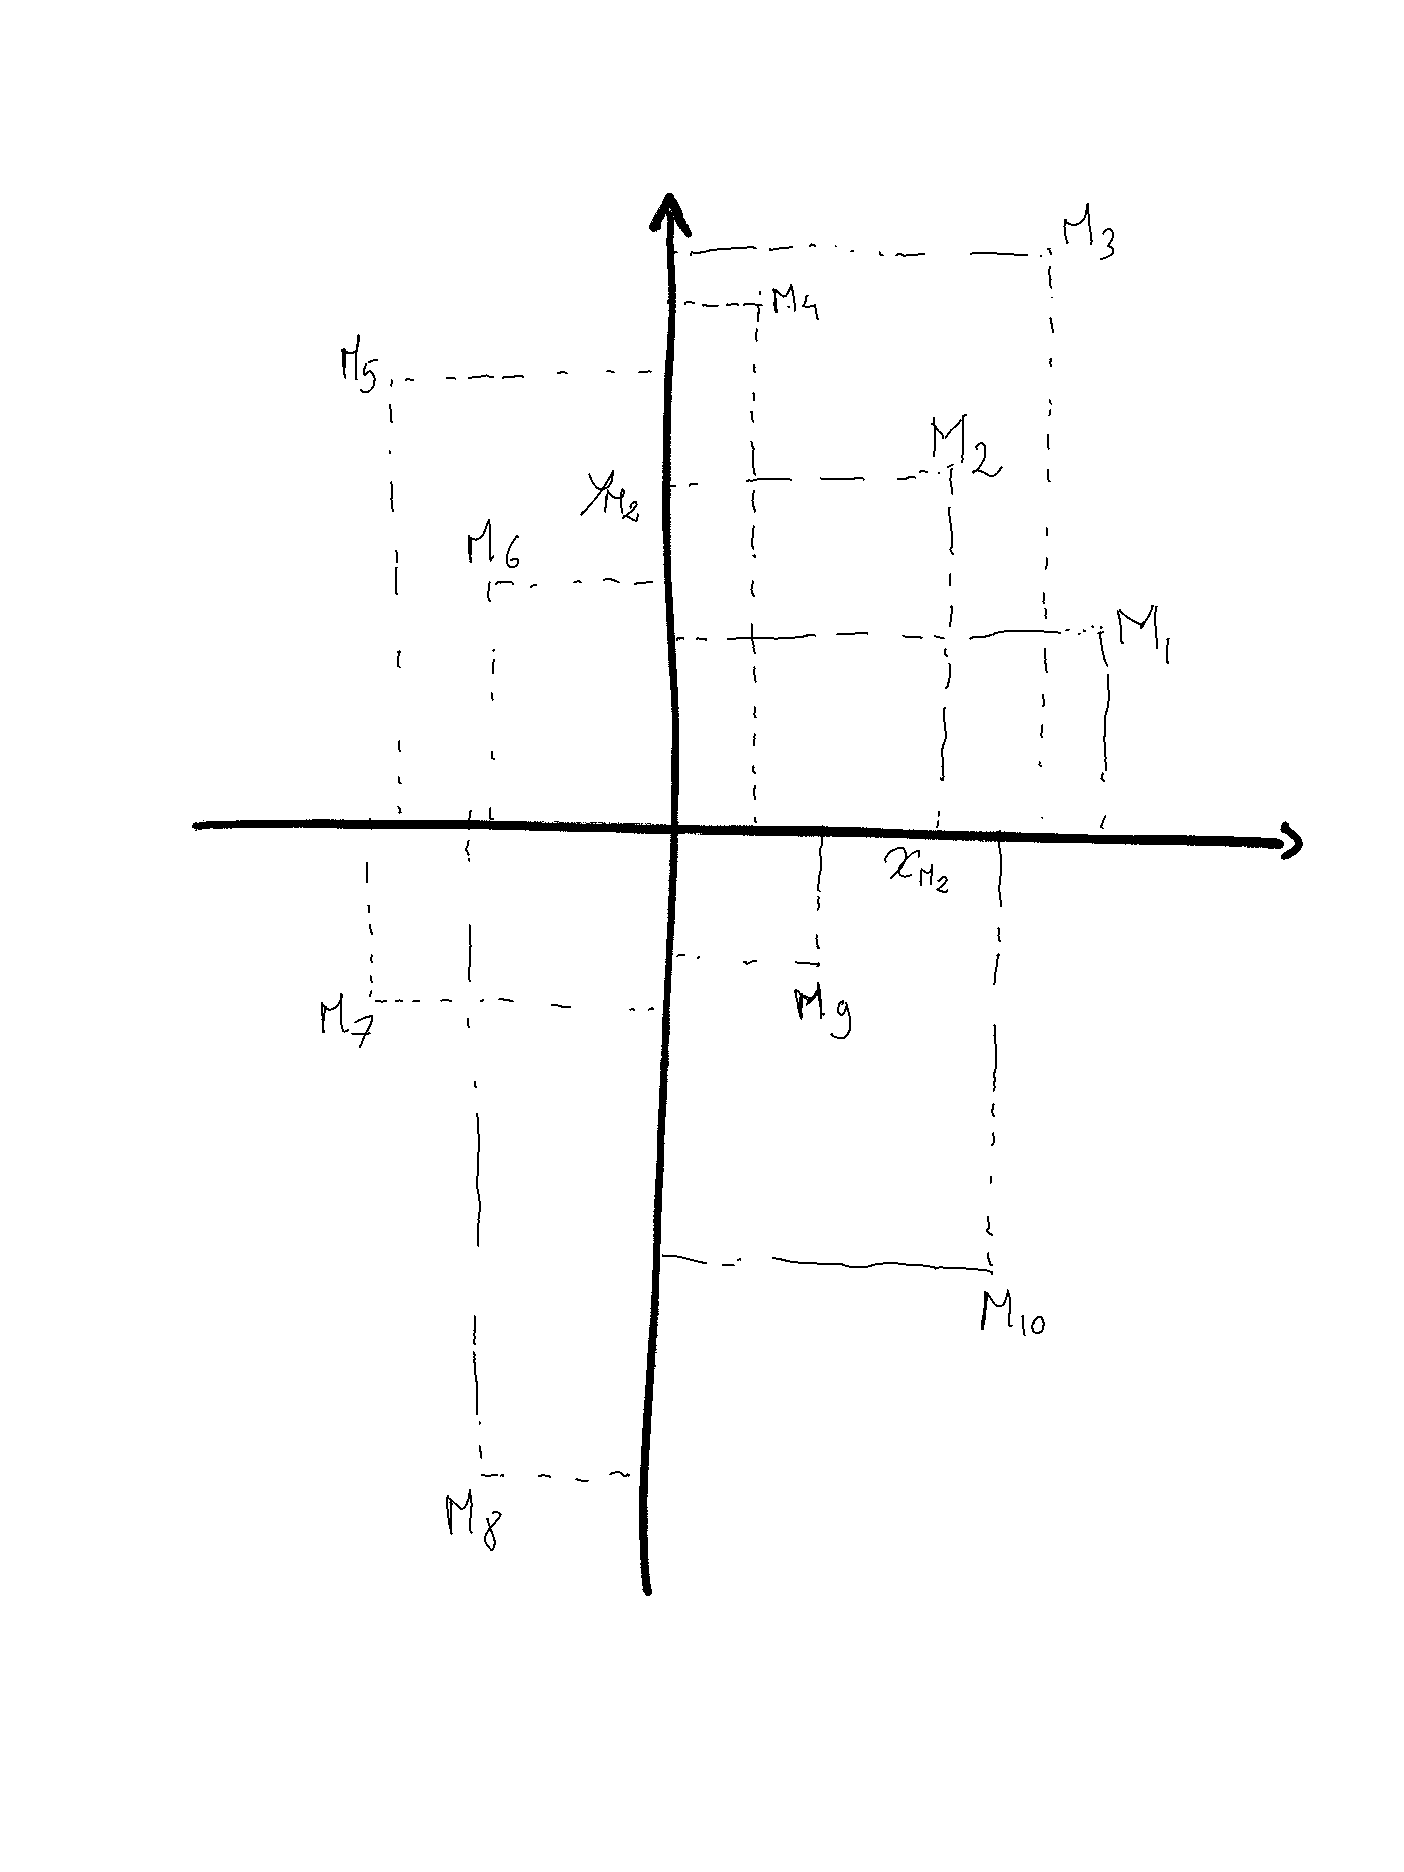 M3
M4
M5
M2
yM2
M6
M1
xM2
M9
M7
M10
M8